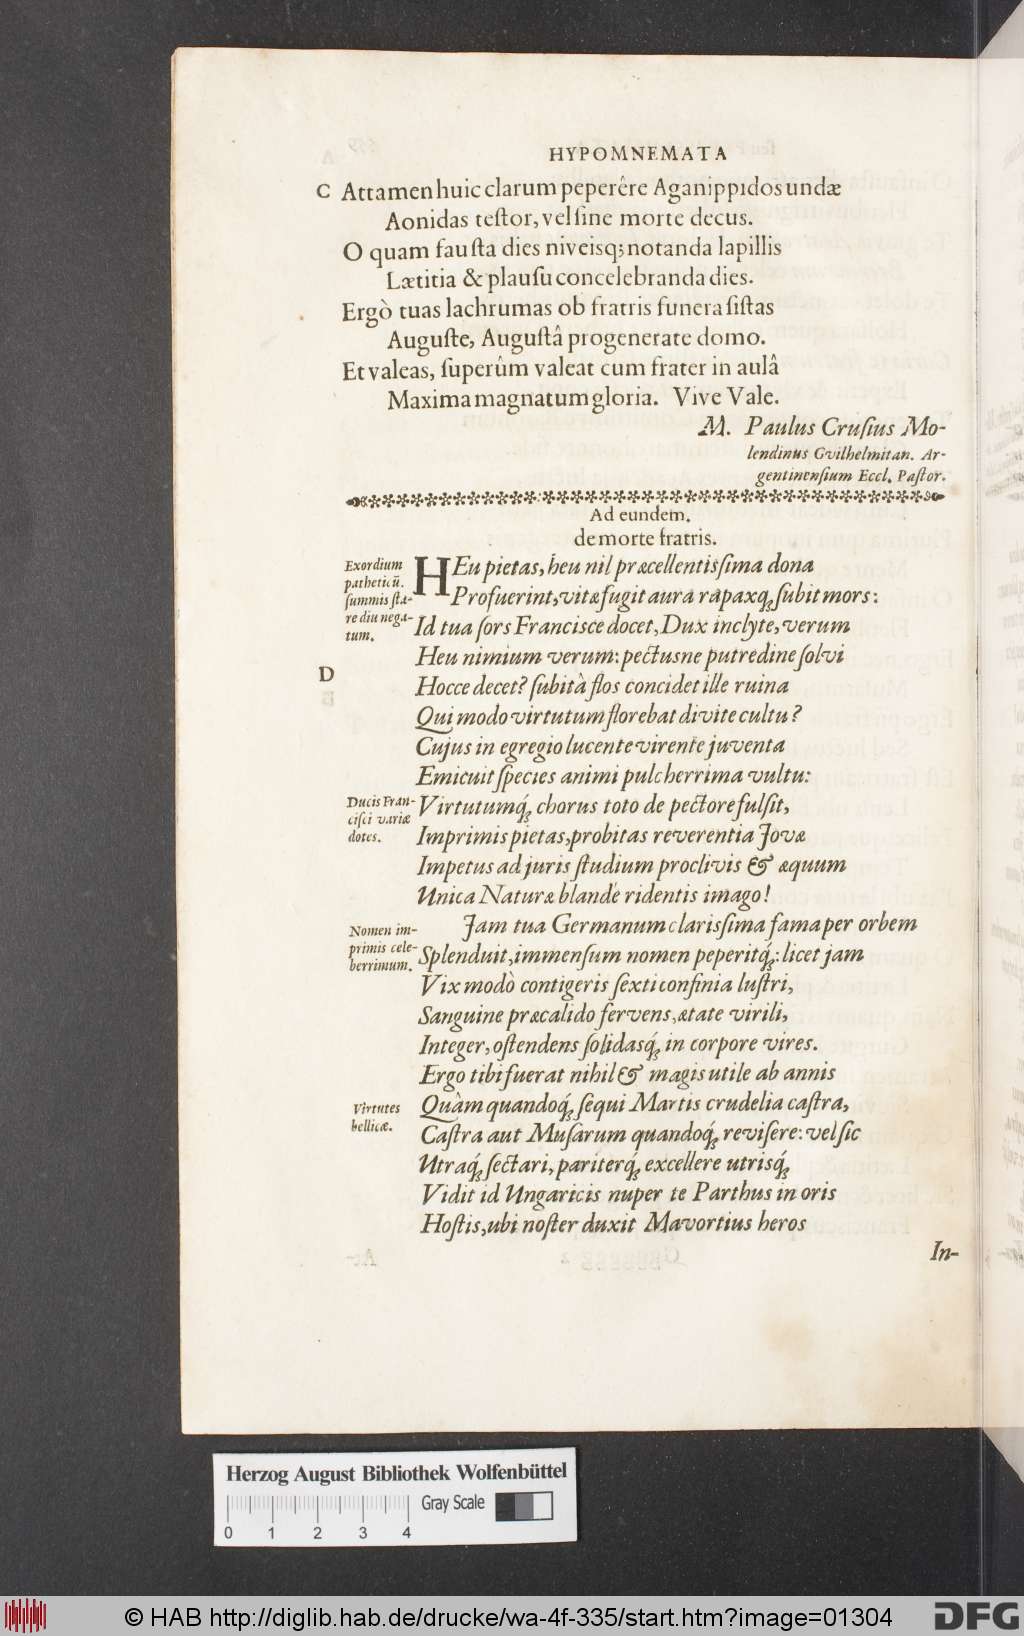 HYPOMNEMATA
C Attamen huic clarum peperêre Aganippidos undæ
Aonidas teſtor, vel ſine morte decus.
O quam fauſta dies niveisq; notanda lapillis
Lætitia & plauſu concelebranda dies.
Ergò tuas lachrumas ob fratris funera ſiſtas
Auguſte, Auguſtâ progenerate domo.
Et valeas, ſuperûm valeat cum frater in aulâ
Maxima magnatum gloria. Vive Vale.
M. Paulus Cruſius Mo-
lendinus Guilhelmitan. Ar-
gentinenſium Eccl. Paſtor.
Ad eundem.
de morte fratris.
Exordium
patheticũ.
ſummis ſta-
re diu nega-
tum.
HEu pietas, heu nil præcellentiſſima dona
Profuerint, vitæ fugit aura rapaxq́; ſubit mors:
Id tua ſors Franciſce docet, Dux inclyte, verum
Heu nimium verum: pectusne putredine ſolvi
D
Hocce decet? ſubità flos concidet ille ruina
Qui modo virtutum florebat divite cultu?
Cujus in egregio lucente virente juventa
Emicuit ſpecies animi pulcherrima vultu:
Ducis Fran-
ciſci variæ
dotes.
Virtutumq́; chorus toto de pectore fulſit,
Imprimis pietas, probitas reverentia Jovæ
Impetus ad juris ſtudium proclivis & æquum
Unica Naturæ blandè ridentis imago!
Nomen im-
primis cele-
berrimum.
Jam tua Germanum clariſſima fama per orbem
Splenduit, immenſum nomen peperitq́;: licet jam
Vix modò contigeris ſexti confinia luſtri,
Sanguine præcalido fervens, ætate virili,
Integer, oſtendens ſolidasq́; in corpore vires.
Ergo tibi fuerat nihil & magis utile ab annis
Virtutes
bellicæ.
Quàm quandoq́; ſequi Martis crudelia caſtra,
Caſtra aut Muſarum quandoq́; reviſere: vel ſic
Utraq́; ſectari, pariterq́; excellere utrisq́;
Vidit id Ungaricis nuper te Parthus in oris
Hoſtis, ubi noſter duxit Mavortius heros
In-
Herzog August Bibliothek Wolfenbüttel
Gray Scale
0 1 2 3 4
© HAB http://diglib.hab.de/drucke/wa-4f-335/start.htm?image=01304
DFG